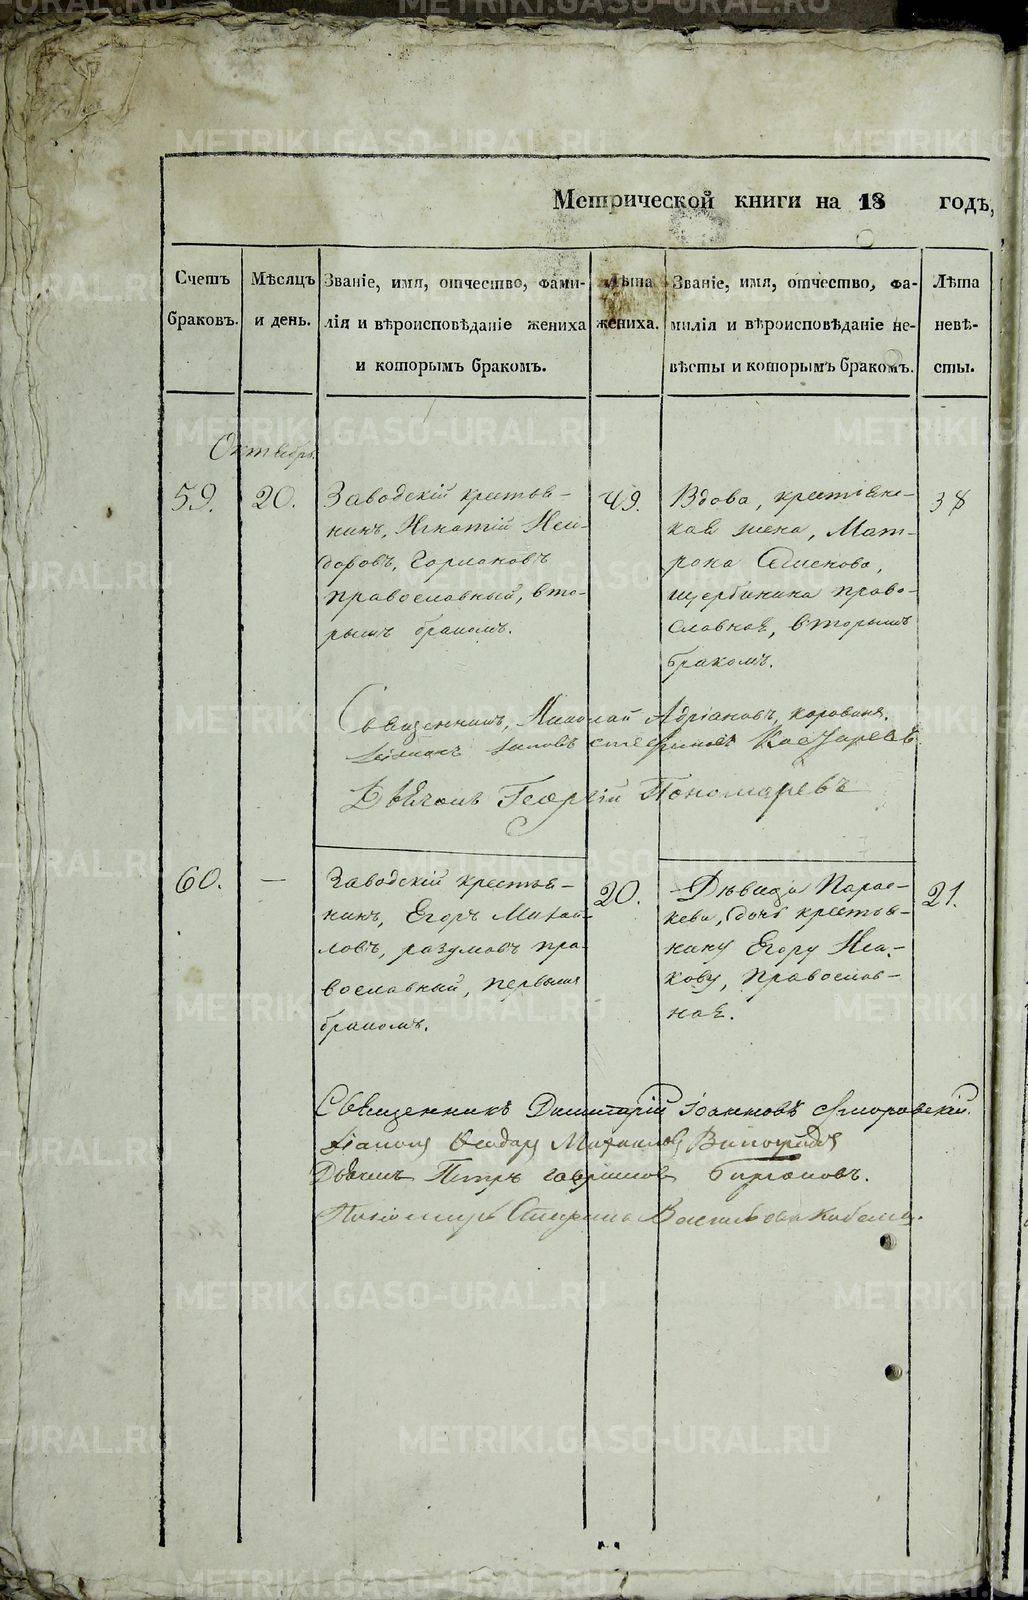 Метрической книги на 18 годъ,
Счетъ браковъ.
Мѣсяцъ и день.
Званіе, имя, отчество, фами-
лія и вѣроисповѣданіе жениха
и которымъ бракомъ.
Лѣта
жениха.
Званіе, имя, отчество, фа-
милія и вѣроисповѣданіе не-
вѣсты и которымъ бракомъ.
Лѣта
невѣ-
сты.
Октябрь
59.
20.
Заводскій крестья-
нинъ, Игнатій Иси-
доровъ, Горлановъ
православный, вто-
рымъ бракомъ.
49.
Вдова, крестьянс-
кая жена, Мат-
рона Семенова,
Щербинина право-
славная, вторымъ
бракомъ.
38
Священникъ, Николай Адріановъ, Коровинъ.
Дѣячокъ Георгій Пономаревъ
60.
—
Заводскій крестья-
нинъ, Егоръ Михай-
ловъ, разумовъ пра-
вославный, первымъ
бракомъ.
20.
Дѣвица Парас-
кева, дочь крестья-
нину Егору Иса-
кову, Православ-
ная.
21.
Священникъ Димитрій Іоанновъ
Михаиловъ
Петръ
Пономарь
METRIKI.GASO-URAL.RU